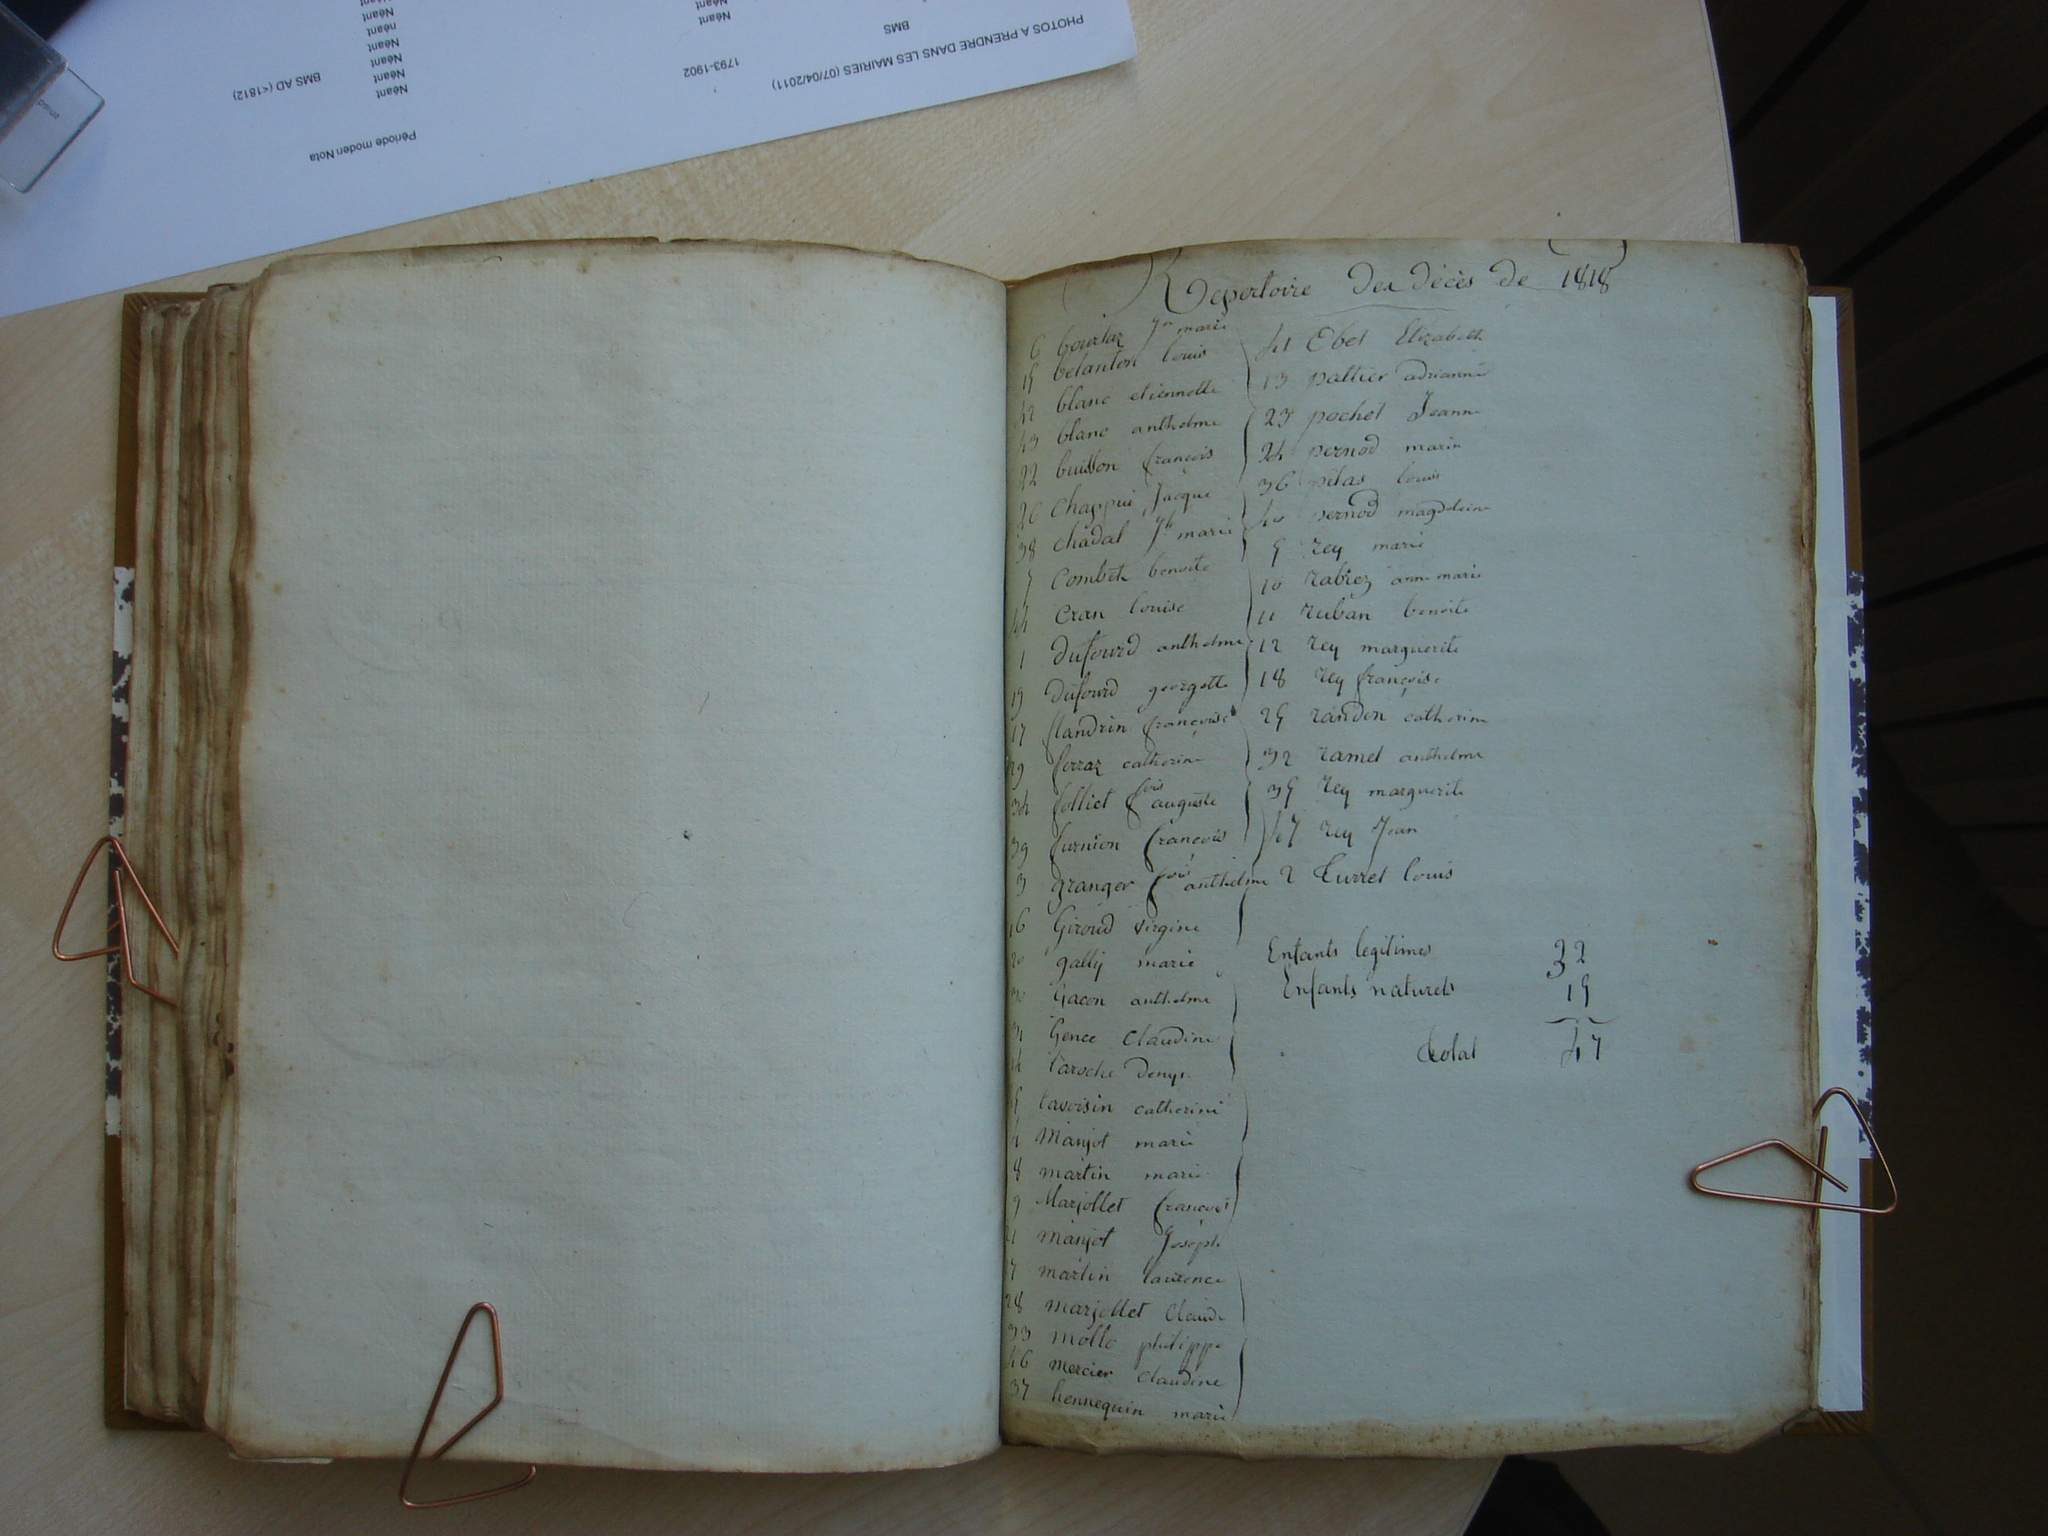 Repertoire des décès de 1818
6 bourlaz Jn marie
15 belanton louis
42 blanc etiennette
43 blanc anthelme
22 buisson françois
26 chappui Jacque
38 chadal Jh marie
7 Combet benoite
44 cran louise
1 dufourd anthelme
19 dufourd georgette
17 flandrin françoise
29 ferraz catherine
34 folliet fois auguste
39 furnion françois
3 granger fois anthelme
16 Giroud virgine
20 gally marie
30 Gacon anthelme
31 Gence Claudine
14 laroche denys
5 lavoisin catherine
4 Manjot marie
8 martin marie
9 Marjollet françois
21 manjot Joseph
7 martin laurence
28 marjollet Claude
33 molle philippe
46 mercier Claudine
37 hennequin marie
41 Obel Elizabeth
13 pattier adrianne
23 pochet Jeanne
24 pernod marie
36 pilas louis
40 pernod magdeleine
5 rey marie
10 rabiez anne marie
11 ruban benoite
12 rey marguerite
18 rey françoise
25 randon catherine
32 ramel anthelme
35 rey marguerite
47 rey Jean
2 turrel louis
Enfants legitimes 32
Enfants naturels 15
total 47
PHOTOS A PRENDRE DANS LES MAIRIES (07/04/2011)
BMS
1793-1902
Néant
Néant
BMS AD (<1812)
Néant
Néant
Néant
néant
Néant
Période moden Nota